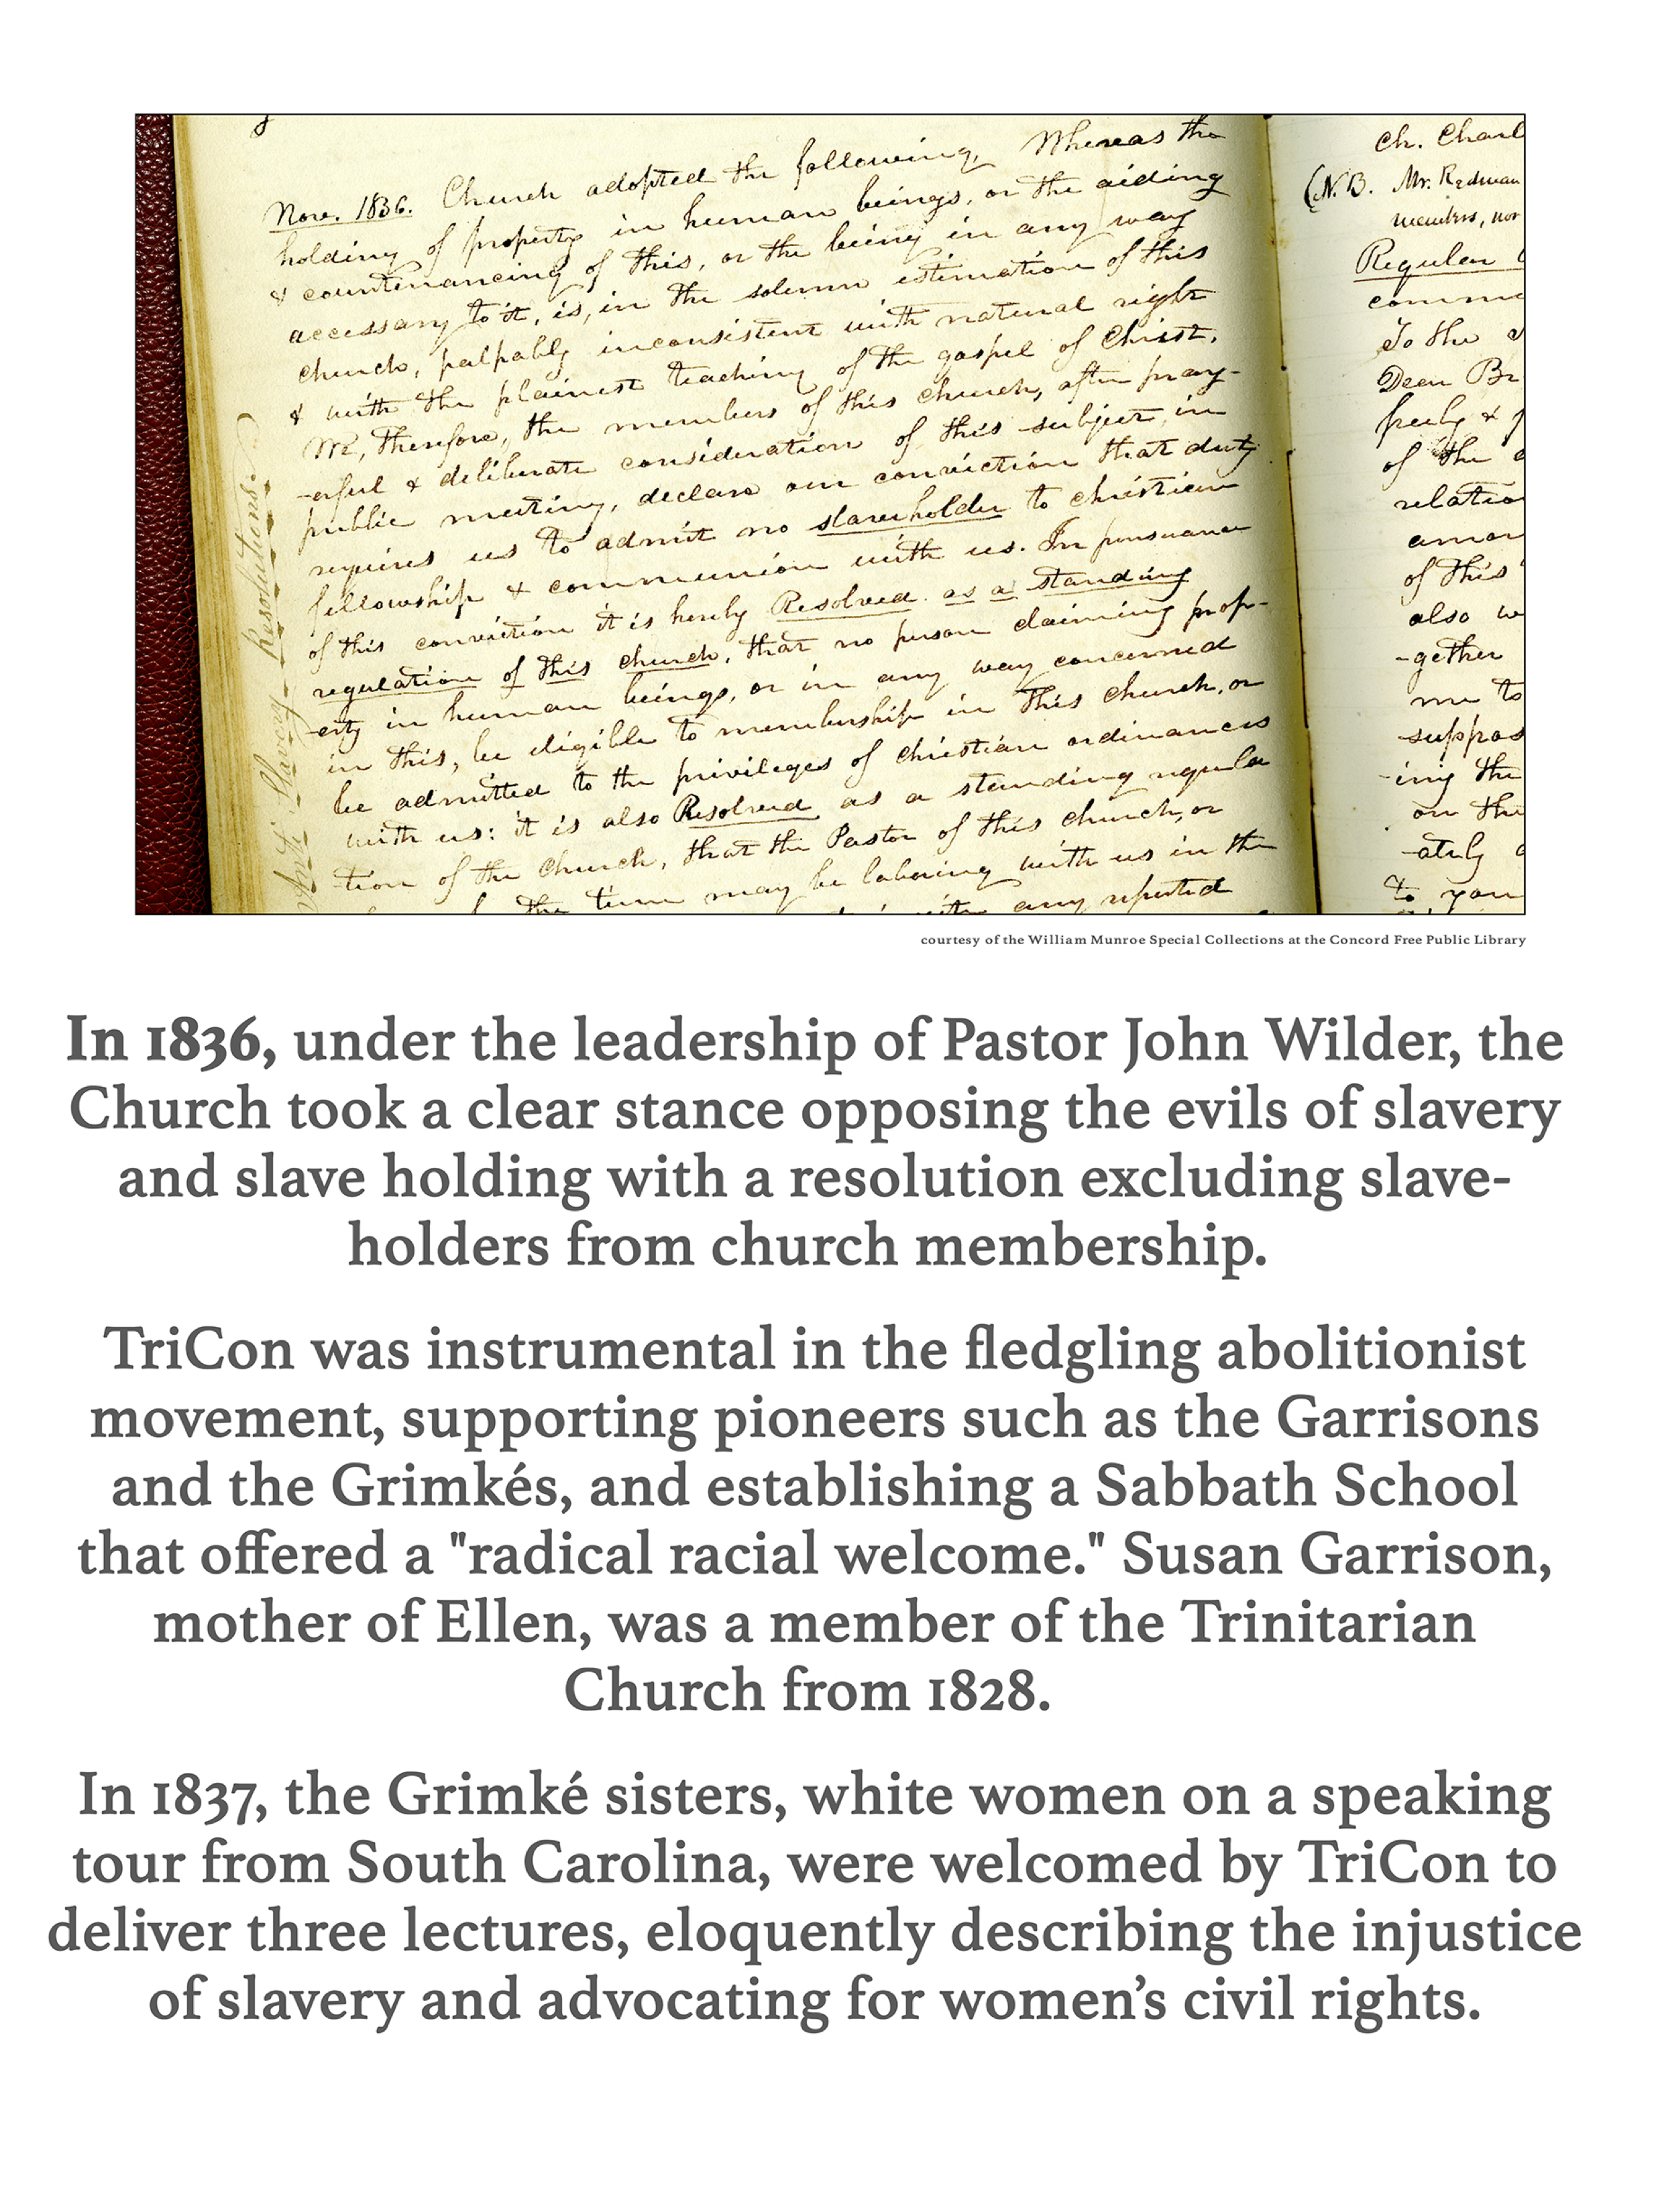 Nov. 1836. Church adopted the following, Whereas the
holding of property in human beings, or the aiding
& countenancing of this, or the being in any way
accessary to it, is, in the solemn estimation of this
church, palpably inconsistent with natural right
& with the plainest teaching of the gospel of Christ.
We, Therefore, the members of this church, after pray-
-erful & deliberate consideration of this subject, in
public meeting, declare our conviction that duty
requires us to admit no slaveholder to christian
fellowship & communion with us. In pursuance
of this conviction it is hereby Resolved as a standing
regulation of this church, that no person claiming prop-
-erty in human beings, or in any way concerned
in this, be eligible to membership in this church, or
be admitted to the privileges of christian ordinances
with us: it is also Resolved as a standing regula
-tion of the church, that the Pastor of this church, or
the time may be laboring with us in the
with any reputed
Anti-Slavery Resolutions.
Ch. Charl
(N.B. Mr. Redman
members, nor
Regular
comm
To the
Dear Br
freely &
of the
relatio
amon
of this
also w
-gether
me to
suppos
-ing the
on the
-ately
to you
courtesy of the William Munroe Special Collections at the Concord Free Public Library
In 1836, under the leadership of Pastor John Wilder, the
Church took a clear stance opposing the evils of slavery
and slave holding with a resolution excluding slave-
holders from church membership.
TriCon was instrumental in the fledgling abolitionist
movement, supporting pioneers such as the Garrisons
and the Grimkés, and establishing a Sabbath School
that offered a "radical racial welcome." Susan Garrison,
mother of Ellen, was a member of the Trinitarian
Church from 1828.
In 1837, the Grimké sisters, white women on a speaking
tour from South Carolina, were welcomed by TriCon to
deliver three lectures, eloquently describing the injustice
of slavery and advocating for women’s civil rights.